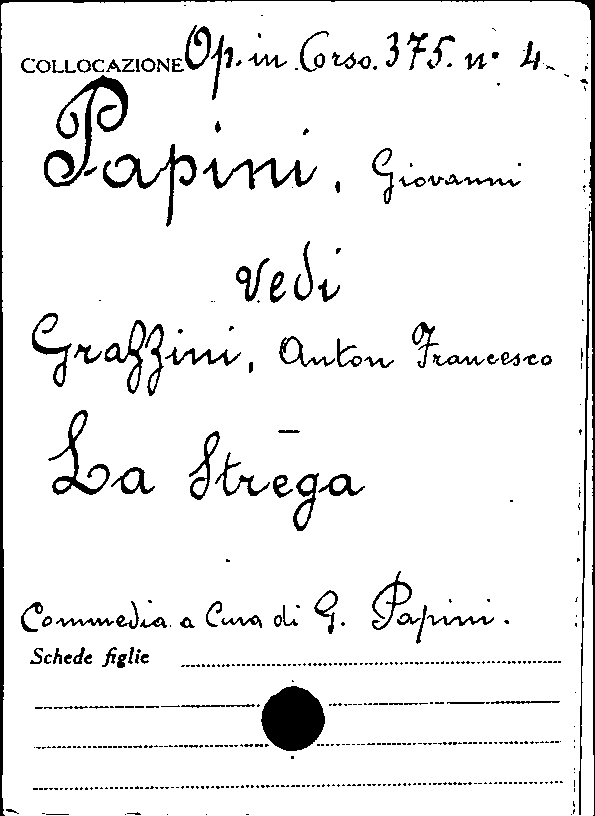 COLLOCAZIONE Op. in Corso. 375. n. 4
Papini, Giovanni
vedi
Grazzini, Anton Francesco
—
La Strega
Commedia a Cura di G. Papini.
Schede figlie